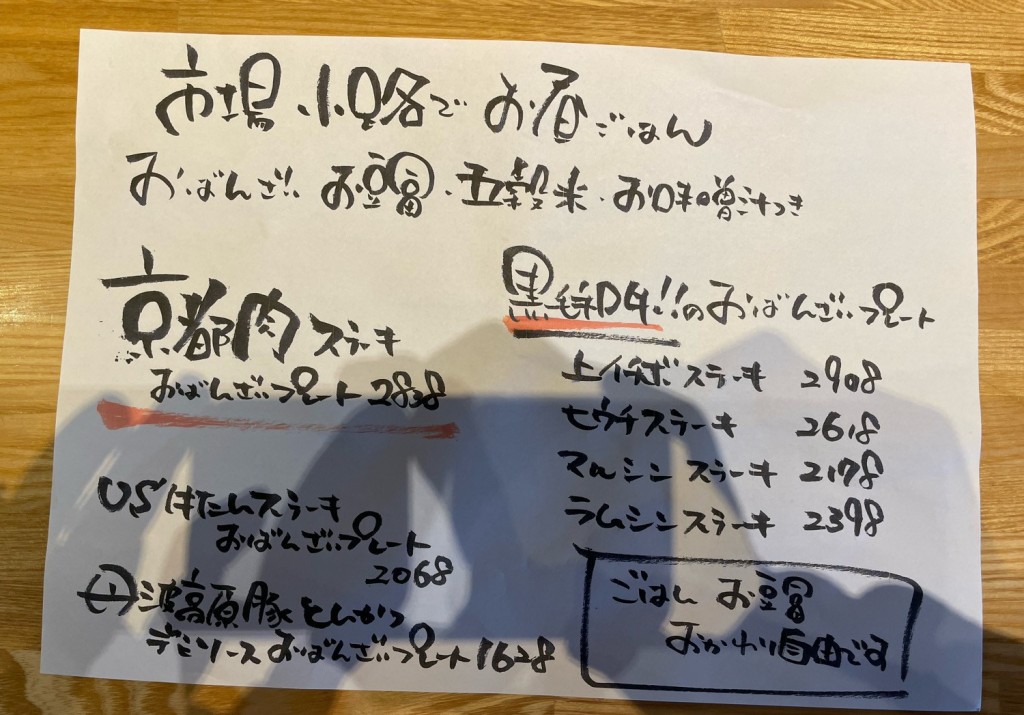 市場小路でお昼ごはん
おばんざい お豆富・五穀米・お味噌汁つき
京都肉ステーキ
おばんざいプレート 2838
USはたムステーキ
おばんざいプレート
2068
丹波高原豚とんかつ
デミソースおばんざいプレート 1628
黒毛和牛!!のおばんざいプレート
上イチボステーキ 2908
センウチステーキ 2618
マルシンステーキ 2178
ラムシンステーキ 2398
ごはん お豆富
おかわり自由です